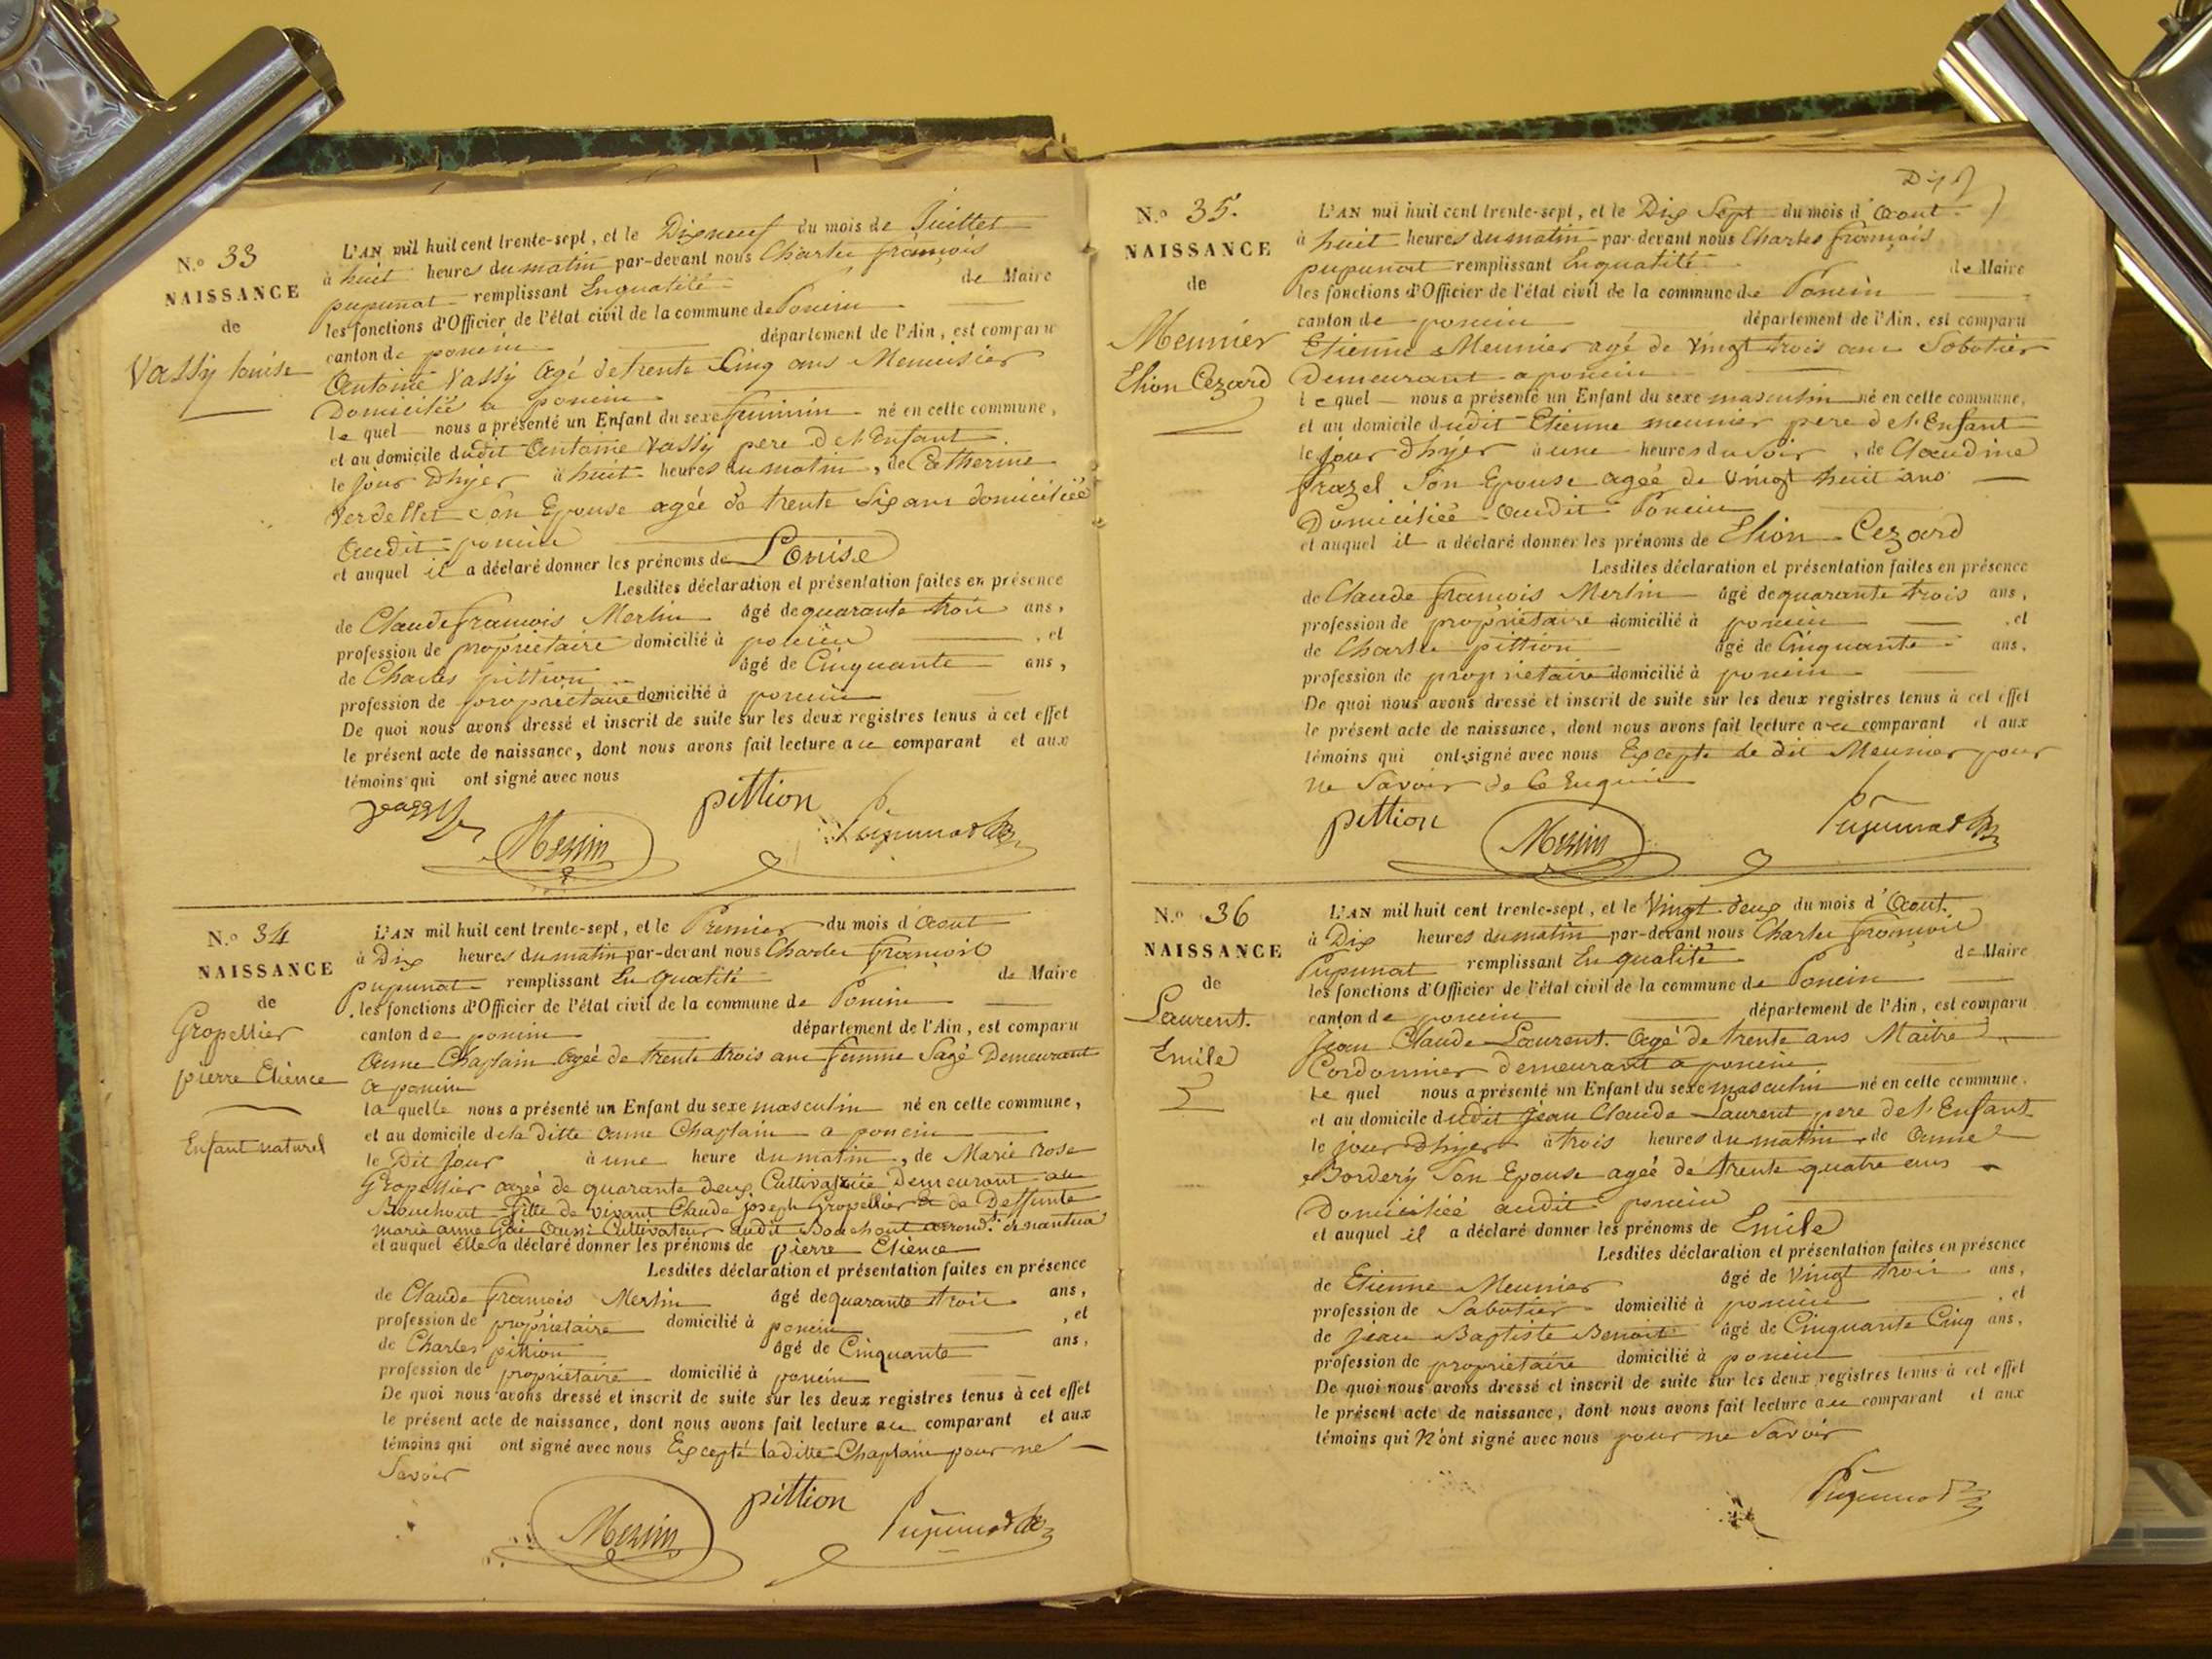 N.º 33
NAISSANCE
de
Vassy Louise
L'AN mil huit cent trente-sept, et le Dixneuf du mois de Juillet
à huit heures du matin par-devant nous Charles françois
pupunat remplissant En qualité de Maire
les fonctions d'Officier de l'état civil de la commune de Poncin
canton de poncin département de l'Ain, est comparu
Antoine Vassy agé de trente Cinq ans Menuisier
Domicilié a poncin
le quel nous a présenté un Enfant du sexe feminin né en cette commune,
et au domicile dudit Antoine Vassy pere de l'Enfant
le jour Dhyer à huit heures du matin, de Catherine
Verdellet Son Epouse agée de trente Six ans domiciliée
Audit poncin
et auquel il a déclaré donner les prénoms de Louise
Lesdites déclaration et présentation faites en présence
de Claude françois Merlin âgé de quarante trois ans,
profession de propriétaire domicilié à poncin, et
de Charles pittion âgé de Cinquante ans,
profession de propriétaire domicilié à poncin
De quoi nous avons dressé et inscrit de suite sur les deux registres tenus à cet effet
le présent acte de naissance, dont nous avons fait lecture au comparant et aux
témoins qui ont signé avec nous
pittion
Merlin
Pupunat
N.º 34
NAISSANCE
de
Gropellier
pierre Etience
Enfant naturel
L'AN mil huit cent trente-sept, et le Premier du mois d'Aout
à Dix heures du matin par-devant nous Charles François
pupunat remplissant En qualité de Maire
les fonctions d'Officier de l'état civil de la commune de Poncin
canton de poncin département de l'Ain, est comparu
Anne Chaplain agée de trente trois ans femme Sage Demeurant
a poncin
la quelle nous a présenté un Enfant du sexe masculin né en cette commune,
et au domicile de la Ditte Anne Chaplain a poncin
le Dit jour à une heure du matin, de Marie Rose
Gropellier agée de quarante deux Cultivatrice Demeurant au
Bouchout fille de vivant Claude joseph Gropellier & de Deffunte
marie anne Aussi Cultivateur audit Bouchout arrond.t de nantua
et auquel elle a déclaré donner les prénoms de pierre Etience
Lesdites déclaration et présentation faites en présence
de Claude françois Merlin âgé de quarante trois ans,
profession de propriétaire domicilié à poncin, et
de Charles pittion âgé de Cinquante ans,
profession de propriétaire domicilié à poncin
De quoi nous avons dressé et inscrit de suite sur les deux registres tenus à cet effet
le présent acte de naissance, dont nous avons fait lecture au comparant et aux
témoins qui ont signé avec nous Excepté laditte Chaplain pour ne
Savoir
pittion
Merlin
Pupunat
N.º 35.
NAISSANCE
de
Meunier
Elion Cezard
L'AN mil huit cent trente-sept, et le Dix Sept du mois d'Aout
à huit heures du matin par-devant nous Charles françois
pupunat remplissant En qualité de Maire
les fonctions d'Officier de l'état civil de la commune de Poncin
canton de poncin département de l'Ain, est comparu
Etienne Meunier agé de vingt trois ans Sabotier
Demeurant a poncin
le quel nous a présenté un Enfant du sexe masculin né en cette commune,
et au domicile dudit Etienne meunier pere de l'Enfant
le jour dhyer à une heures du Soir, de Claudine
frazel Son Epouse agée de vingt huit ans
Domiciliée Audit Poncin
et auquel il a déclaré donner les prénoms de Elion Cezard
Lesdites déclaration et présentation faites en présence
de Claude françois Merlin âgé de quarante trois ans,
profession de propriétaire domicilié à poncin, et
de Charles pittion âgé de Cinquante ans,
profession de propriétaire domicilié à poncin
De quoi nous avons dressé et inscrit de suite sur les deux registres tenus à cet effet
le présent acte de naissance, dont nous avons fait lecture au comparant et aux
témoins qui ont signé avec nous Excepte le dit Meunier pour
ne Savoir de Ce Enquis
pittion
Merlin
Pupunat
N.º 36
NAISSANCE
de
Laurent.
Emile
L'AN mil huit cent trente-sept, et le Vingt deux du mois d'Aout.
à Dix heures du matin par-devant nous Charles François
Pupunat remplissant En qualité de Maire
les fonctions d'Officier de l'état civil de la commune de Poncin
canton de poncin département de l'Ain, est comparu
Jean Claude Laurent. Agé de trente ans Maitre
Cordonnier demeurant a poncin
le quel nous a présenté un Enfant du sexe masculin né en cette commune,
et au domicile dudit Jean Claude Laurent pere de l'Enfant
le jour Dhyer à trois heures du matin, de Anne
Bordery Son Epouse agée de trente quatre ans
Domiciliée audit poncin
et auquel il a déclaré donner les prénoms de Emile
Lesdites déclaration et présentation faites en présence
de Etienne Meunier âgé de vingt trois ans,
profession de Sabotier domicilié à poncin, et
de Jean Baptiste Benoit âgé de Cinquante Cinq ans,
profession de propriétaire domicilié à poncin
De quoi nous avons dressé et inscrit de suite sur les deux registres tenus à cet effet
le présent acte de naissance, dont nous avons fait lecture au comparant et aux
témoins qui n'ont signé avec nous pour ne Savoir
Pupunat